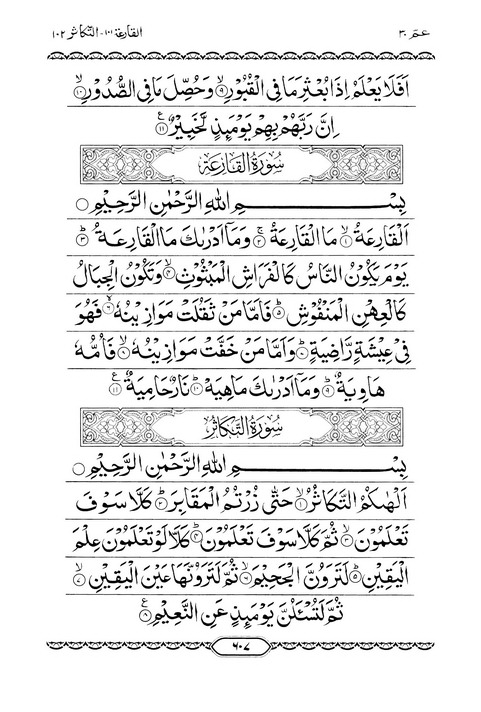 عـم ٣٠
القارعة ١٠١ - التكاثر ١٠٢
اَفَلَا يَعْلَمُ اِذَا بُعْثِرَ مَا فِى الْقُبُوْرِ ۙ۝٩ وَحُصِّلَ مَا فِى الصُّدُوْرِ ۙ۝١٠
اِنَّ رَبَّهُمْ بِهِمْ يَوْمَئِذٍ لَّخَبِيْرٌ ۝١١ ع
سُوْرَةُ الْقَارِعَةِ
بِسْـــــمِ اللهِ الرَّحْمٰنِ الرَّحِيْمِ ۝
اَلْقَارِعَةُ ۙ۝١ مَا الْقَارِعَةُ ۚ۝٢ وَمَاۤ اَدْرٰىكَ مَا الْقَارِعَةُ ؕ۝٣
يَوْمَ يَكُوْنُ النَّاسُ كَالْفَرَاشِ الْمَبْثُوْثِ ۙ۝٤ وَتَكُوْنُ الْجِبَالُ
كَالْعِهْنِ الْمَنْفُوْشِ ؕ۝٥ فَاَمَّا مَنْ ثَقُلَتْ مَوَازِيْنُهٗ ۙ۝٦ فَهُوَ
فِىْ عِيْشَةٍ رَّاضِيَةٍ ؕ۝٧ وَاَمَّا مَنْ خَفَّتْ مَوَازِيْنُهٗ ۙ۝٨ فَاُمُّهٗ
هَاوِيَةٌ ؕ۝٩ وَمَاۤ اَدْرٰىكَ مَاهِيَهْ ؕ۝١٠ نَارٌ حَامِيَةٌ ۝١١ ع
سُوْرَةُ التَّكَاثُرِ
بِسْـــــمِ اللهِ الرَّحْمٰنِ الرَّحِيْمِ ۝
اَلْهٰىكُمُ التَّكَاثُرُ ۙ۝١ حَتّٰى زُرْتُمُ الْمَقَابِرَ ؕ۝٢ كَلَّا سَوْفَ
تَعْلَمُوْنَ ۙ۝٣ ثُمَّ كَلَّا سَوْفَ تَعْلَمُوْنَ ؕ۝٤ كَلَّا لَوْ تَعْلَمُوْنَ عِلْمَ
الْيَقِيْنِ ؕ۝٥ لَتَرَوُنَّ الْجَحِيْمَ ۙ۝٦ ثُمَّ لَتَرَوُنَّهَا عَيْنَ الْيَقِيْنِ ۙ۝٧
ثُمَّ لَتُسْـَٔلُنَّ يَوْمَئِذٍ عَنِ النَّعِيْمِ ۝٨ ع
٦٠٧